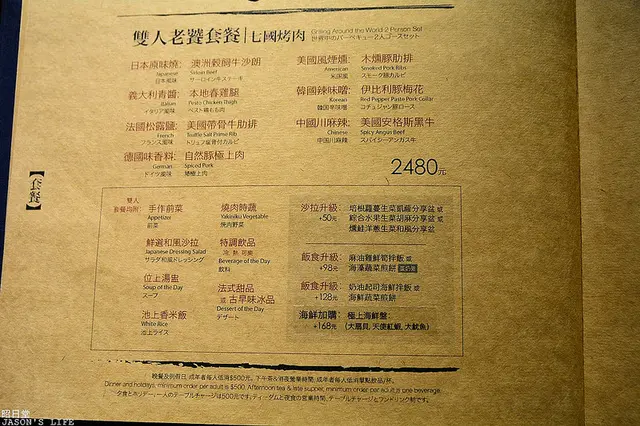 雙人老饕套餐|七國烤肉
Grilling Around the World 2 Person Set
世界中のバーベキュー2人ゴースセット
日本原味燒: 澳洲穀飼牛沙朗
Japanese Sirloin Beef
日本風味 サーロインキステーキ
義大利青醬: 本地春雞腿
Italian Pesto Chicken Thigh
イタリア風味
法國松露鹽: 美國帶骨牛肋排
French Truffle Salt Prime Rib
フランス風味 トリュフ塩骨付カルビ
德國味香料: 自然豚極上肉
German Spiced Pork
ドイツ風味 矮極上肉
美國風煙燻: 木燻豚肋排
American Smoked Pork Ribs
米国風 スモーク豚カルビ
韓國辣味噌: 伊比利豚梅花
Korean Red Pepper Paste Pork Collar
韓国辛味噌 コチュジャン豚ロース
中國川麻辣: 美國安格斯黑牛
Chinese Spicy Angus Beef
中国川麻辣 スパイシーアンガス牛
2480元
【套餐】
雙人
套餐均附:
手作前菜
Appetizer
前菜
鮮選和風沙拉
Japanese Dressing Salad
サラダ和風ドレッシング
位上湯盅
Soup of the Day
スープ
池上香米飯
White Rice
池上ライス
燒肉時蔬
Yakiniku Vegetable
焼肉野菜
特調飲品
(冷, 熱, 可樂)
Beverage of the Day
飲料
法式甜品
或 古早味冰品
Dessert of the Day
デザート
沙拉升級: 培根蘿蔓生菜凱薩分享盆 或
+50元 綜合水果生菜胡麻分享盆 或
燻鮭洋蔥生菜和風分享盆
飯食升級: 麻油雞鮮筍拌飯 或
+98元 海藻蔬菜煎餅
飯食升級: 奶油起司海鮮拌飯 或
+128元 海鮮蔬菜煎餅
海鮮加購: 極上海鮮盤:
+168元 (大扇貝, 天使紅蝦, 大魷魚)
晚餐及例假日, 成年者每人低消$500元。下午茶&宵夜營業時間, 成年者每人低消單點飲品/杯。
Dinner and holidays, minimum order per adult is $500. Afternoon tea & late supper, minimum order per adult is one beverage.
夕食とホリデー、一人のテーブルチャージは500元です。ティーダムと夜食の営業時間、テーブルチャージとワンドリンク制です。
昭日堂
JASON'S LIFE